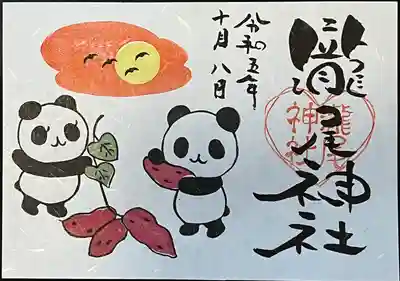 龍尾神社
龍尾
神社
令和五年
十月八日